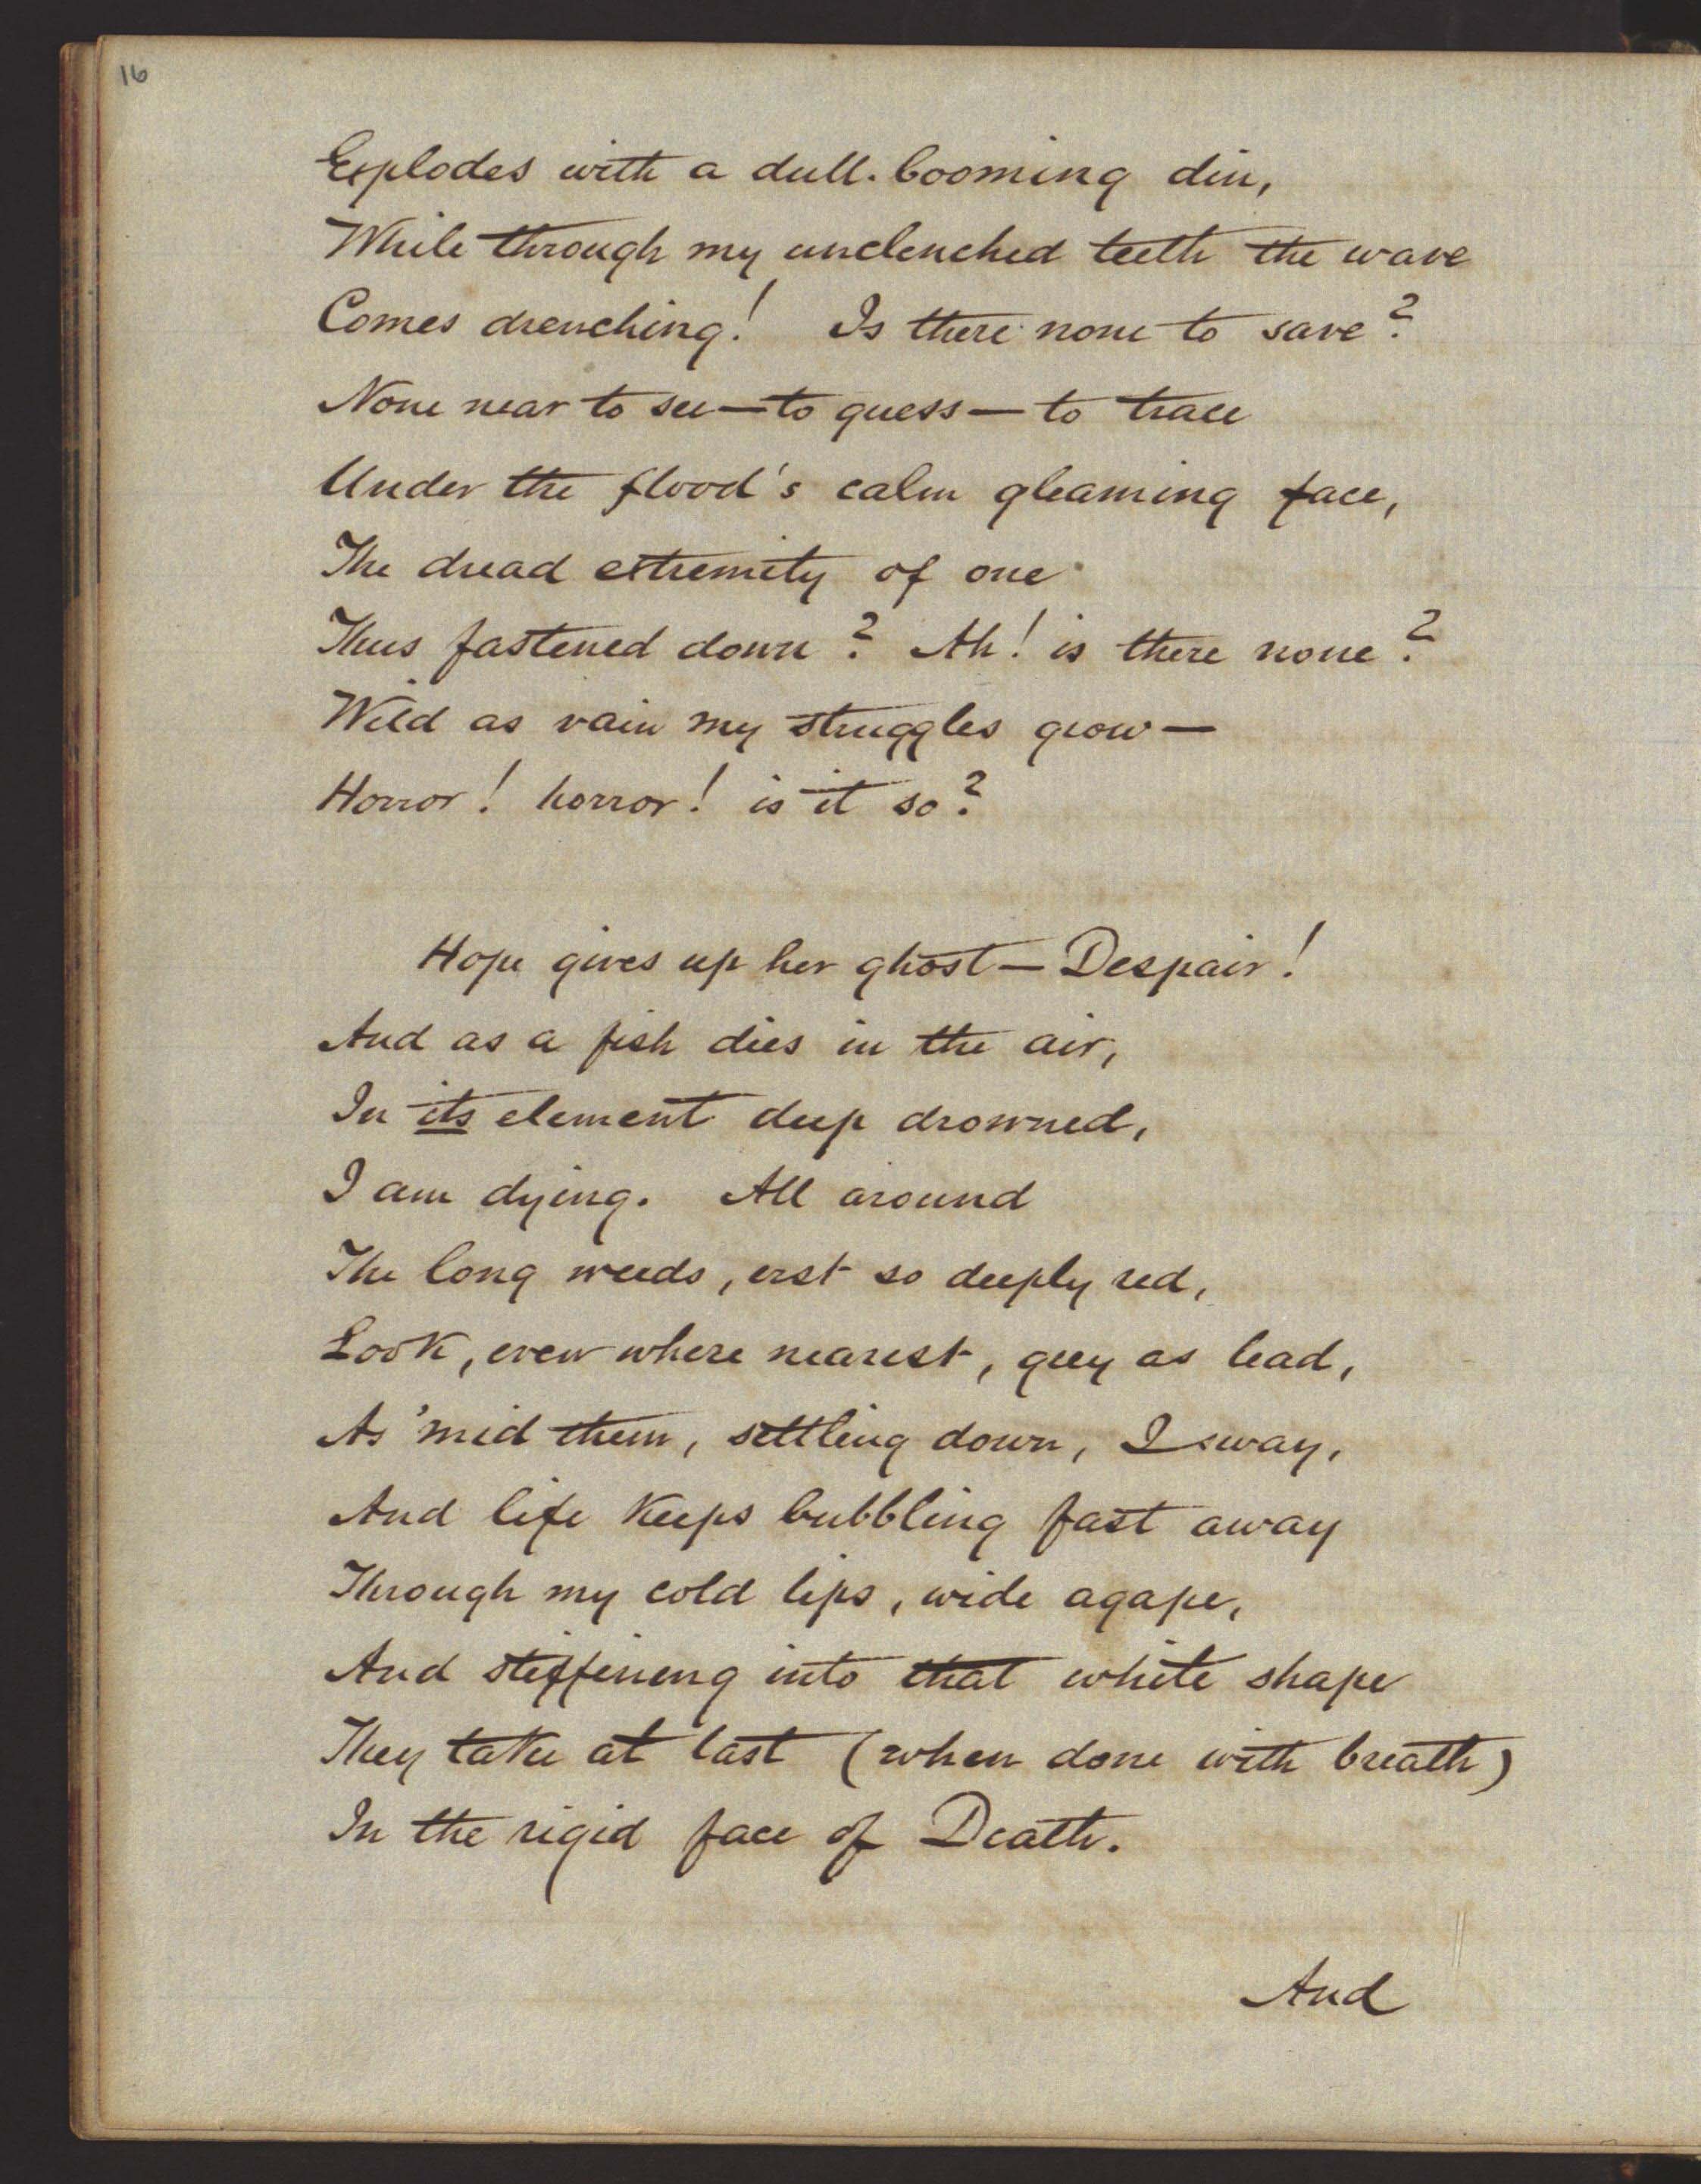 16
Explodes with a dull. booming din,
While through my unclenched teeth the wave
Comes drenching! Is there none to save?
None near to see — to guess — to trace
Under the flood's calm gleaming face,
The dread extremity of one
Thus fastened down? Ah! is there none?
Wild as vain my struggles grow —
Horror! horror! is it so?
Hope gives up her ghost — Despair!
And as a fish dies in the air,
In its element deep drowned,
I am dying. All around
The long weeds, erst so deeply red,
Look, even where nearest, grey as lead,
As 'mid them, settling down, I sway,
And life keeps bubbling fast away
Through my cold lips, wide agape,
And stiffening into that white shape
They take at last (when done with breath)
In the rigid face of Death.
And